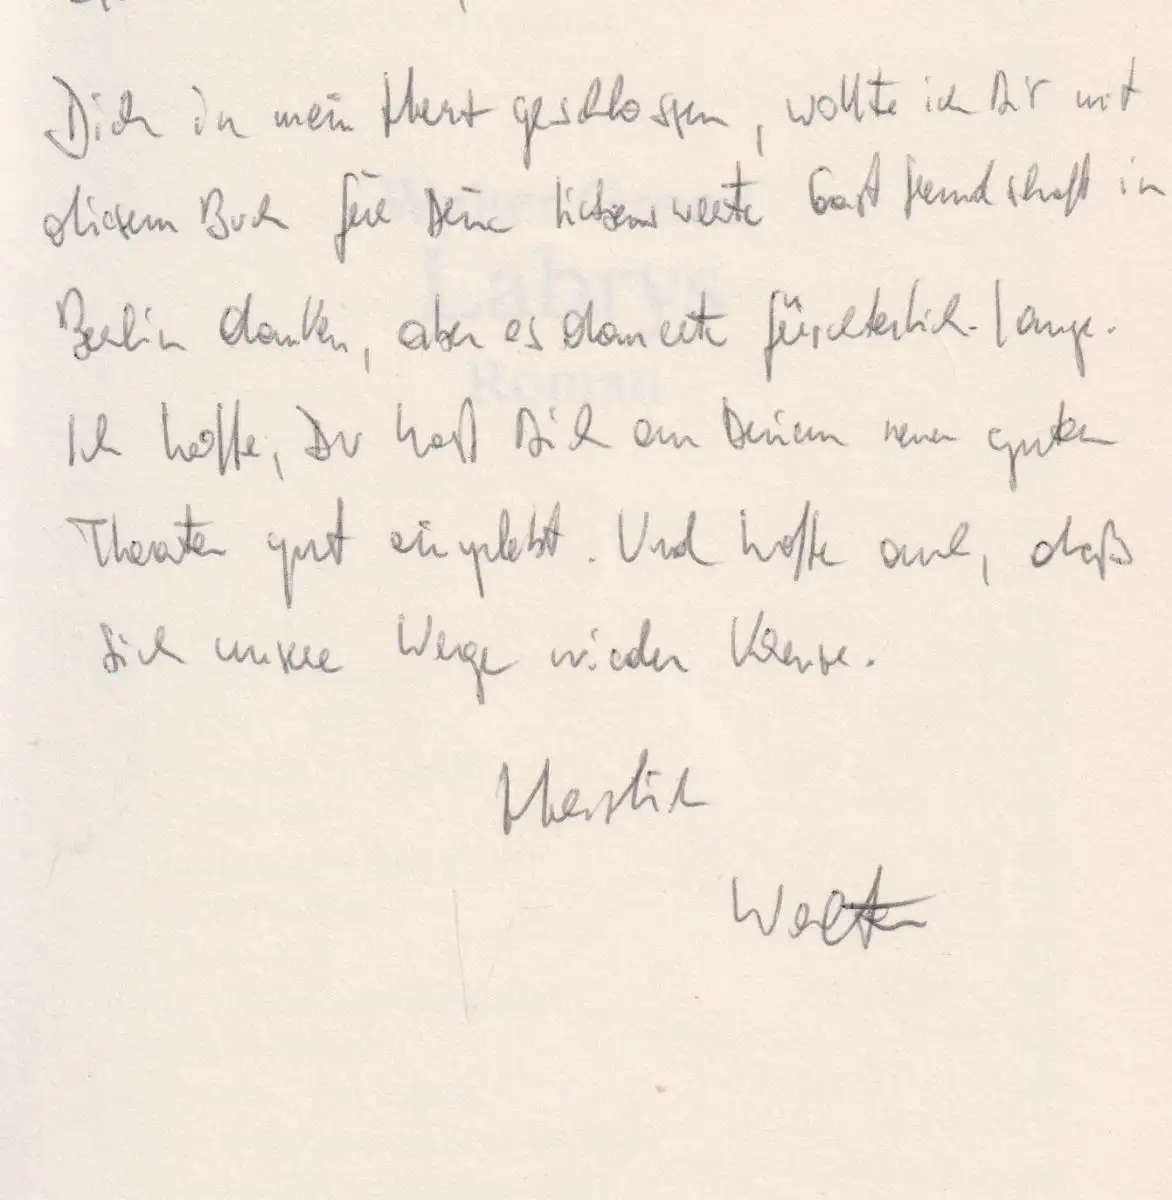 Dich in mein Herz geschlossen, wollte ich Dir mit
diesem Buch für Deine liebenswerte Gastfreundschaft in
Berlin danken, aber es dauerte fürchterlich lange.
Labrys
Roman
Ich hoffe, Du hast Dich an Deinem neuen guten
Theater gut eingelebt. Und hoffe auch, daß
sich unsere Wege wieder kreuze.
Herzlich
Walter